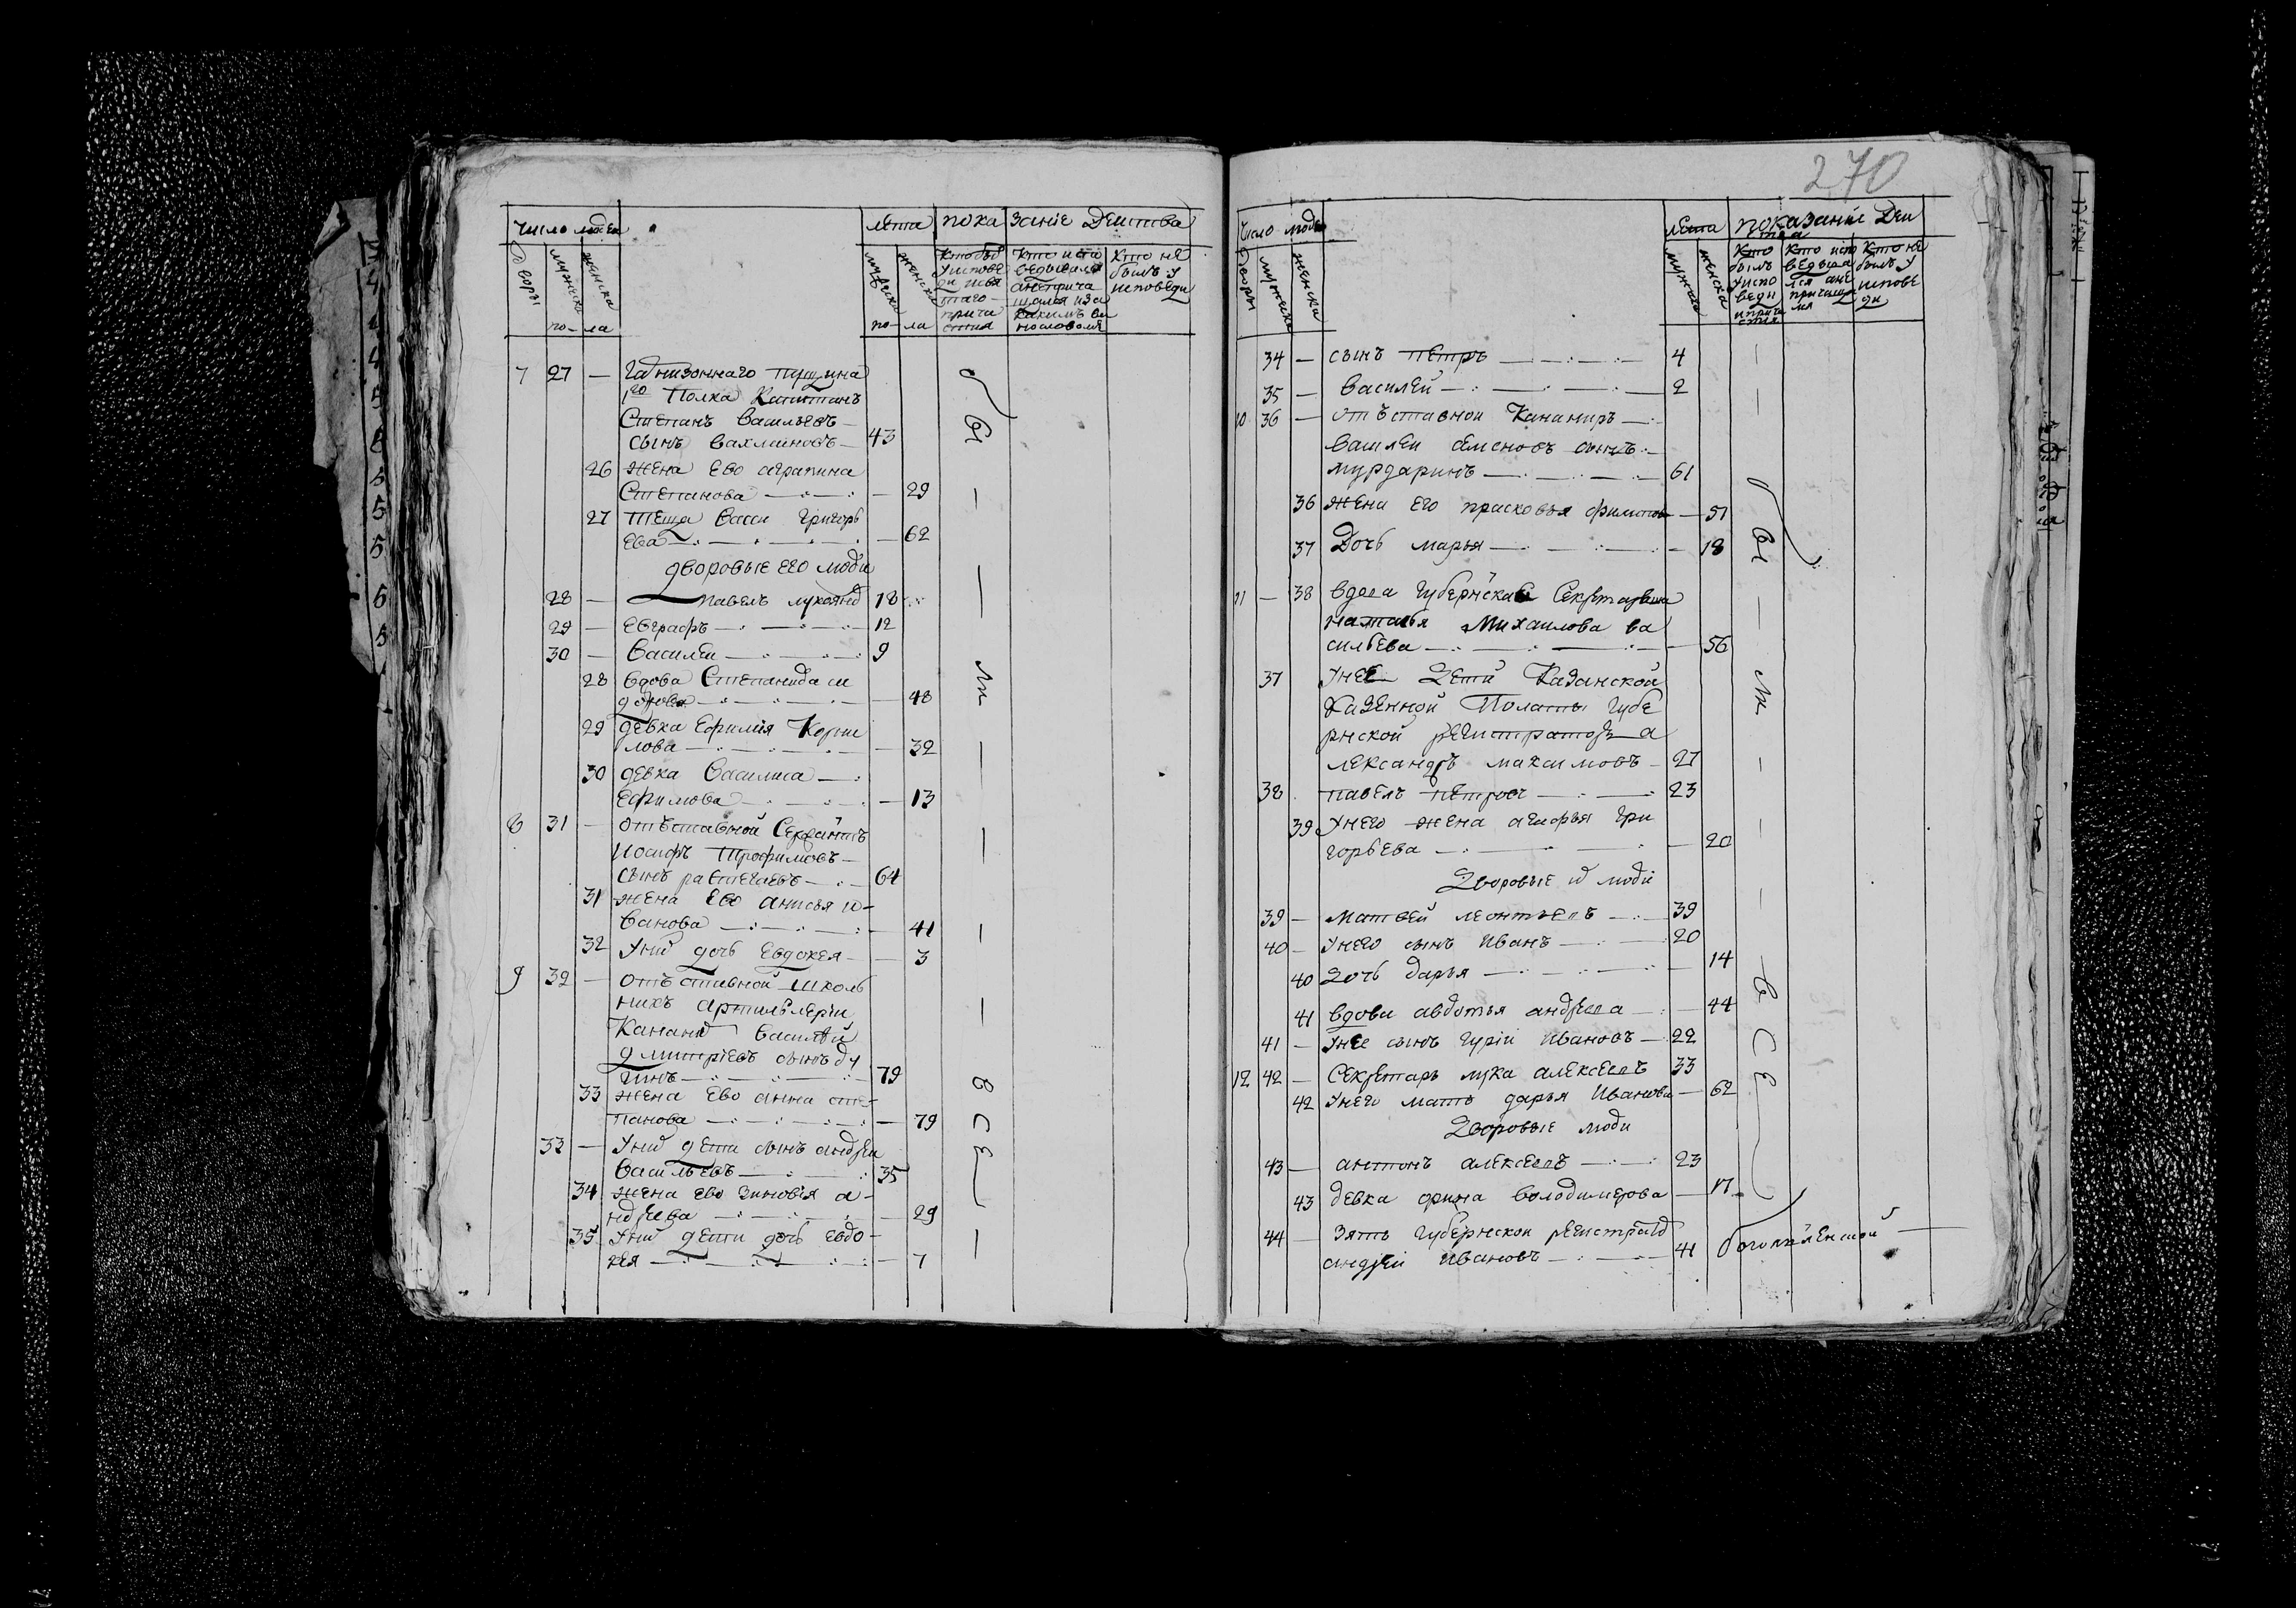 число людей
лета
пока
зание Действа
Дворы
мужеска
женска
по-ла
мужеска
женска
по-ла
Кто был
у испове
ди и свя
таго
прича
стия
Кто испо
ведывался
а не прича
щался и за
каким ви
нословием
Кто не
былъ у
исповеди
7 27 — Гарнизоннаго Пущина
1го Полка Капитанъ
Степанъ Васильевъ —
сынъ Вахминовъ — 43
26 жена Ево аграпина
Степанова — 29
27 теща Васса Григорь
ева — 62
дворовые его люди
28 — павелъ 18
29 — Евграфъ — 12
30 — Василеи — 9
28 вдова Степанида си
дорова — 48
29 девка Ефимия Корни
лова — 32
30 девка Василиса —
Ефимова — 13
8 31 — отъставной Сержантъ
Иосифъ Трофимовъ —
сынъ — 64
31 жена Ево анисья и-
ванова — 41
32 у них дочь Евдокея — 3
9 32 — отъставной школь
никъ артилълерiи
Василей
дмитрiевъ сынъ ду
гинъ — 79
33 жена Ево анна сте-
панова — 79
33 — у них дети сынъ андреи
Васильевъ — 35
34 жена Ево зиновiя а-
ндреева — 29
35 у них дети дочь евдо-
кея — 7
бы
ли
все
270
число людей
лета
показание Деи
тва
дворы
мужеска
женска
мужеска
женска
Кто
былъ
у испо
веди
и прича
стия
Кто испо
ведыва
лся а не
причаща
лся
Кто не
былъ у
испове
ди
34 — сынъ петръ — 4
35 — Василей — 2
10 36 — отъставнои Канониръ —
Василеи семеновъ сынъ —
мурдаринъ — 61
36 жена его прасковья филипова — 51
37 Дочь марья — 18
11 — 38 вдова Губернская Секретарша
наталья Михаилова ва
сильева — 56
37 у нее Дети Казанской
Казенной Полаты Губе
рнской регистраторъ а
лександръ максимовъ — 27
38 павелъ петровъ — 23
39 у него жена агафья гри
горьева — 20
Дворовые их люди
39 — Матвей леонтьевъ — 39
40 — у него сынъ Иванъ — 20
40 Дочь дарья — 14
41 вдова авдотья андреева — 44
41 — у нее сынъ гурiи Ивановъ — 22
12 42 — Секретарь лука алексеевъ 33
42 у него мать дарья Иванова — 62
Дворовые люди
43 — антонъ алексеевъ — 23
43 девка орина володимерова — 17
44 — Зять губернскои регистрато
андреи Ивановъ — 41
бы
ли
все
богоявленской